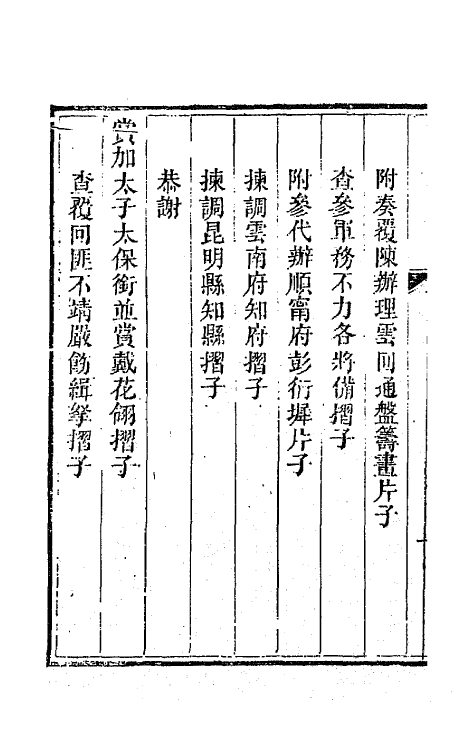 附奏覆陳辦理雲回通盤籌畫片子
查參軍務不力各將備摺子
附參代辦順甯府彭衍墀片子
揀調雲南府知府摺子
揀調昆明縣知縣摺子
恭謝
賞加太子太保銜並賞戴花翎摺子
查覆回匪不靖嚴飭緝拏摺子